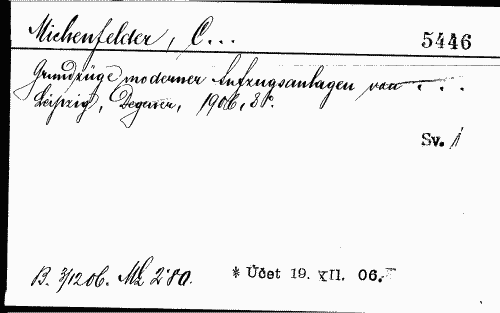 Michenfelder, C...
5446
Grundzüge moderner Aufzugsanlagen von . . .
Leipzig, Degener, 1906, 8°.
Sv. 1
B. 3/12 06. Mk 2'80.
* Účet 19. XII. 06.